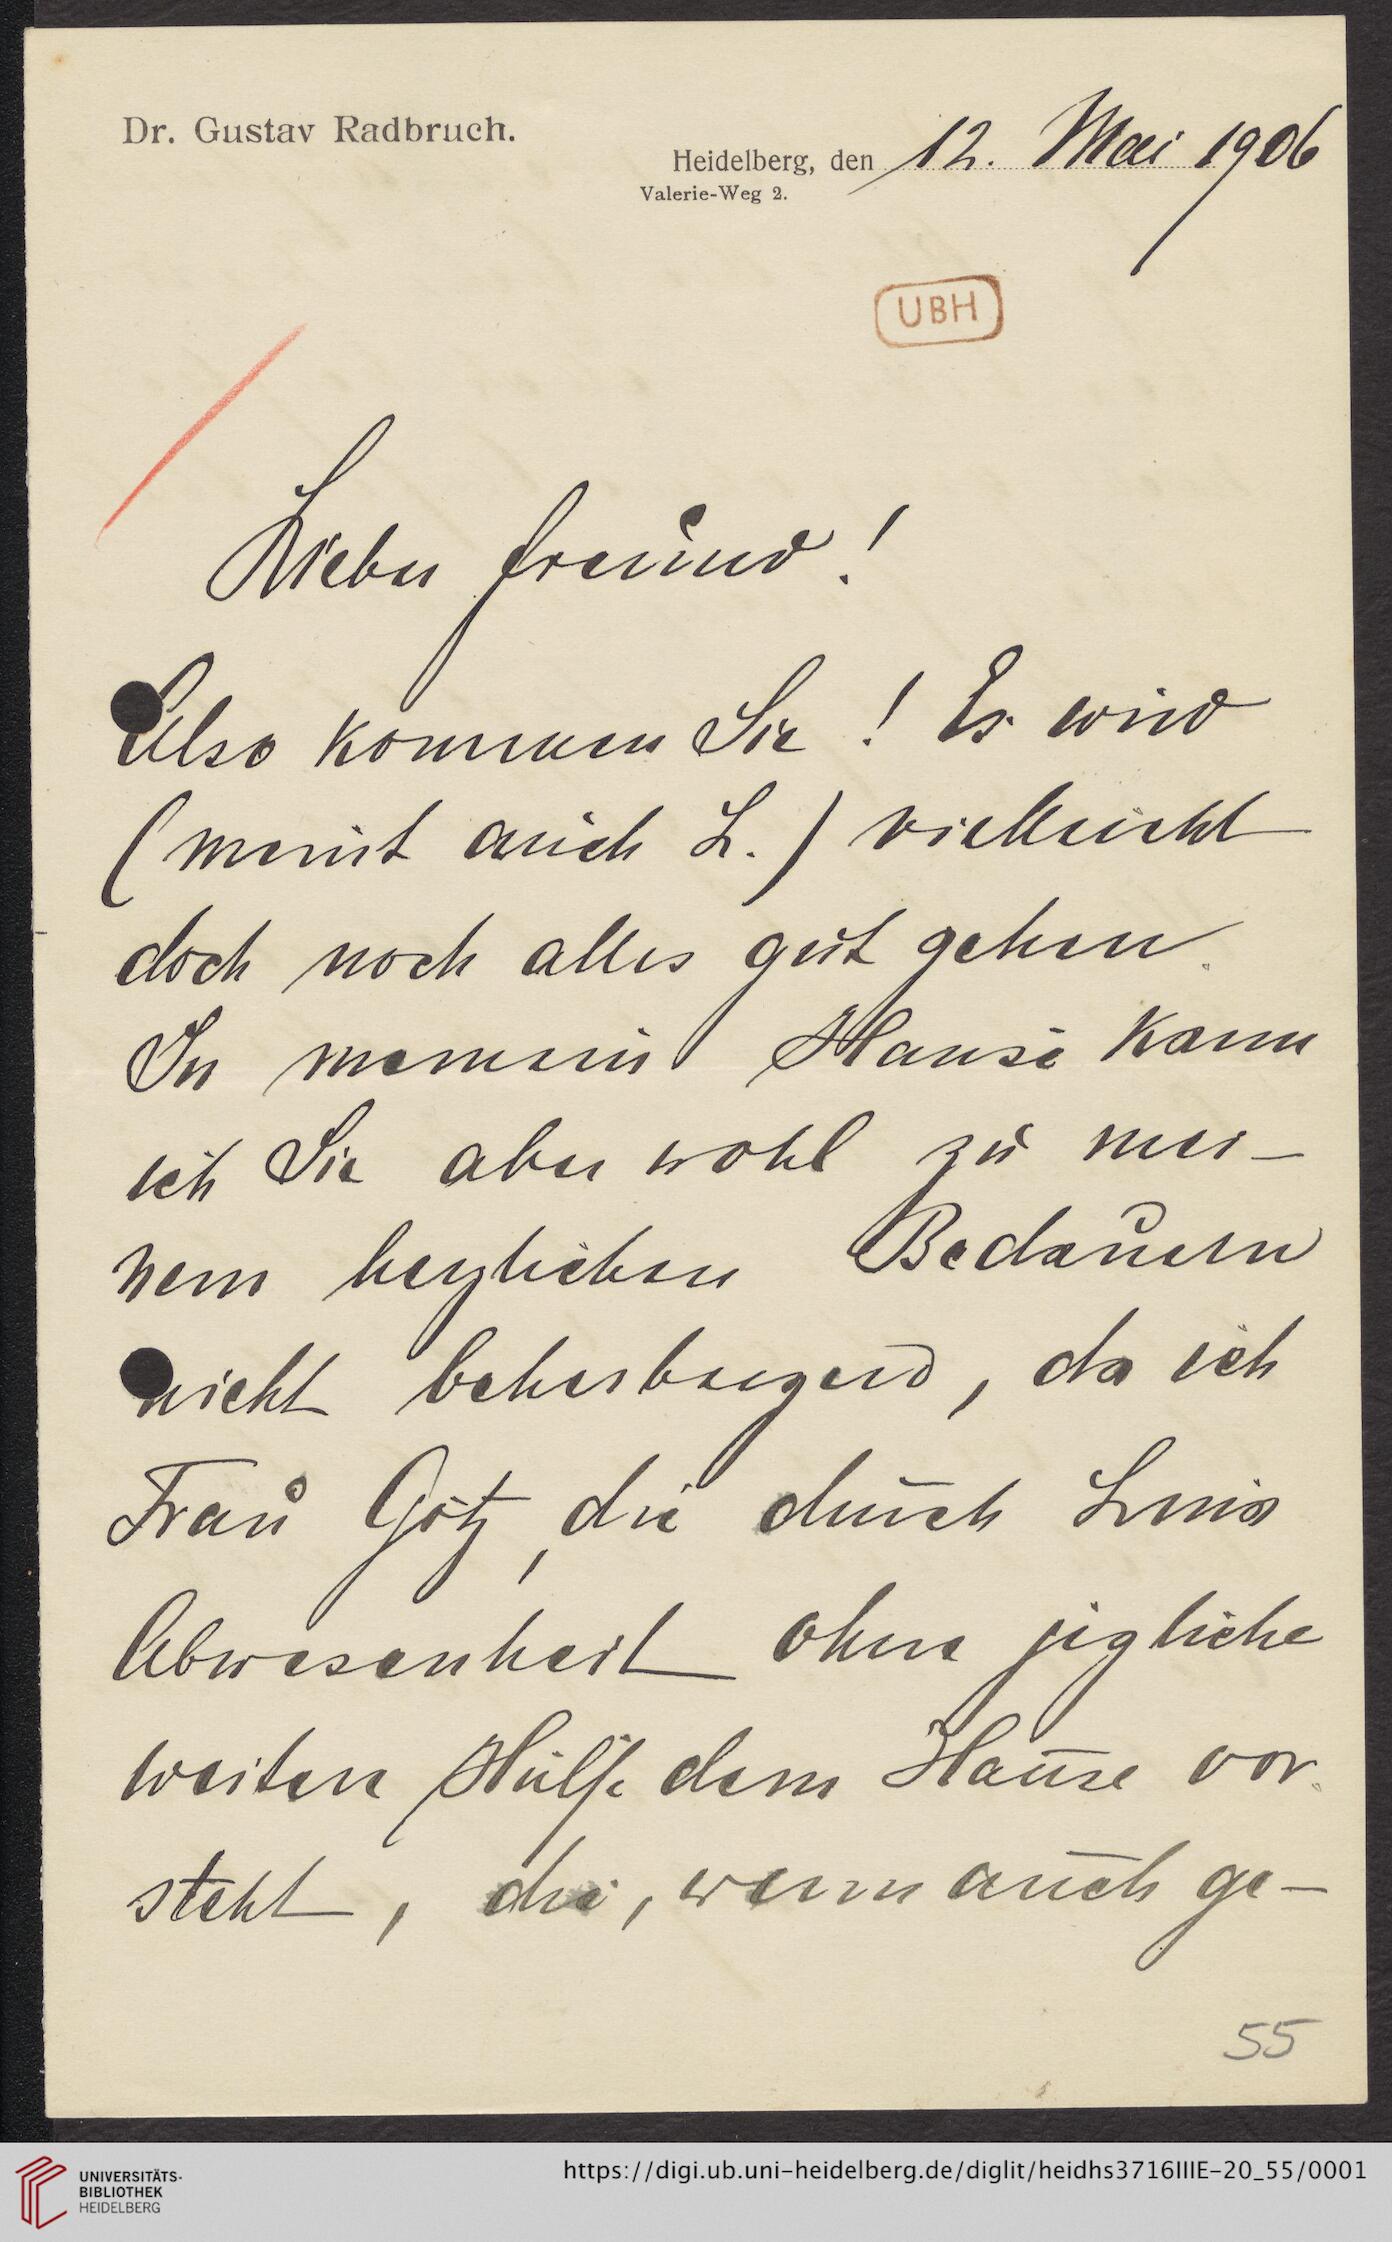 Dr. Gustav Radbruch.
Heidelberg, den 12. Mai 1906
Valerie-Weg 2.
UBH
Lieber Freund!
Also kommen Sie! Es wird
(meint auch L.) vielleicht
doch noch alles gut gehen.
In meinem Hause kann
ich Sie aber wohl zu mei-
nem herzlichen Bedauern
nicht beherbergen, da ich
Frau Götz, die durch
Abwesenheit ohne jegliche
weitere Hülfe dem Hause vor
steht, die, wenn auch ge-
55
UNIVERSITÄTS-
BIBLIOTHEK
HEIDELBERG
https://digi.ub.uni-heidelberg.de/diglit/heidhs3716IIIE-20_55/0001